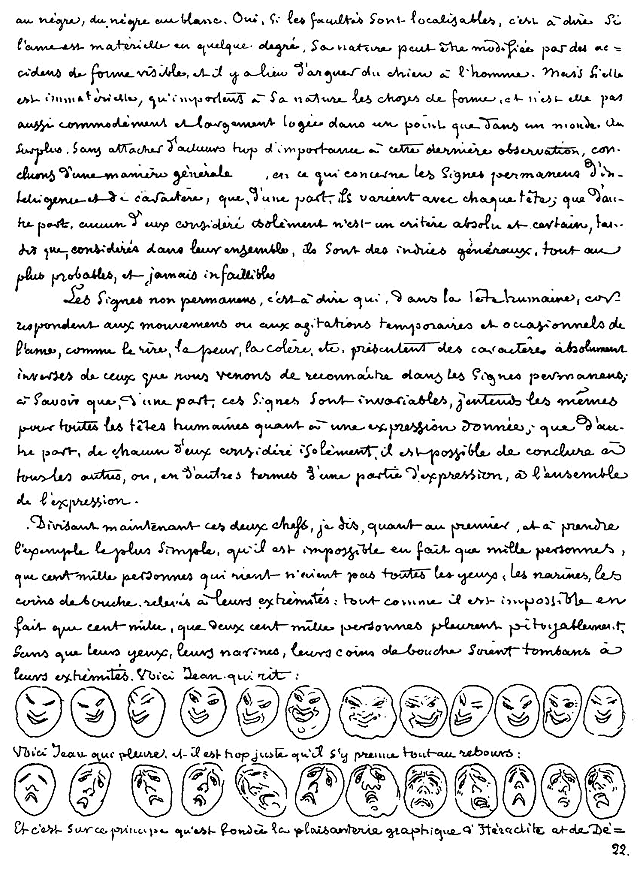 au nègre, du nègre au blanc. Oui, si les facultés sont localisables, c'est à dire si
l'ame est matérielle en quelque degré, sa nature peut être modifiée par des ac=
cidens de forme visible, et il y a lieu d'arguer du chien à l'homme. Mais si elle
est immatérielle, qu'importent à sa nature les choses de forme, et n'est elle pas
aussi commodément et largement logée dans un point que dans un monde. Au
surplus, sans attacher d'ailleurs trop d'importance à cette dernière observation, con-
cluons d'une manière générale , en ce qui concerne les signes permanens d'in-
telligence et de caractère, que, d'une part, ils varient avec chaque tête; que d'au-
tre part, aucun d'eux considéré isolément n'est un critère absolu et certain, tan-
dis que, considérés dans leur ensemble, ils sont des indices généraux, tout au
plus probables, et jamais infaillibles
Les signes non permanens, c'est à dire qui, dans la tête humaine, cor-
respondent aux mouvemens ou aux agitations temporaires et occasionnels de
l'ame, comme le rire, la peur, la colère, etc. présentent des caractères absolument
inverses de ceux que nous venons de reconnaître dans les signes permanens;
à savoir que, d'une part, ces signes sont invariables, j'entends les mêmes
pour toutes les têtes humaines quant à une expression donnée; que d'au-
tre part, de chacun d'eux considéré isolément, il est possible de conclure à
tous les autres, ou, en d'autres termes d'une partie d'expression, à l'ensemble
de l'expression.
Divisant maintenant ces deux chefs, je dis, quant au premier, et à prendre
l'exemple le plus simple, qu'il est impossible en fait que mille personnes,
que cent mille personnes qui rient n'aient pas toutes les yeux, les narines, les
coins de bouche, relevés à leurs extrémités: tout comme il est impossible en
fait que cent mille, que deux cent mille personnes pleurent pitoyablement,
sans que leurs yeux, leurs narines, leurs coins de bouche soient tombans à
leurs extrémités. Voici Jean qui rit:
Voici Jean qui pleure, et il est trop juste qu'il s'y prenne tout au rebours:
Et c'est sur ce principe qu'est fondée la plaisanterie graphique d'Héraclite et de Dé=
22.